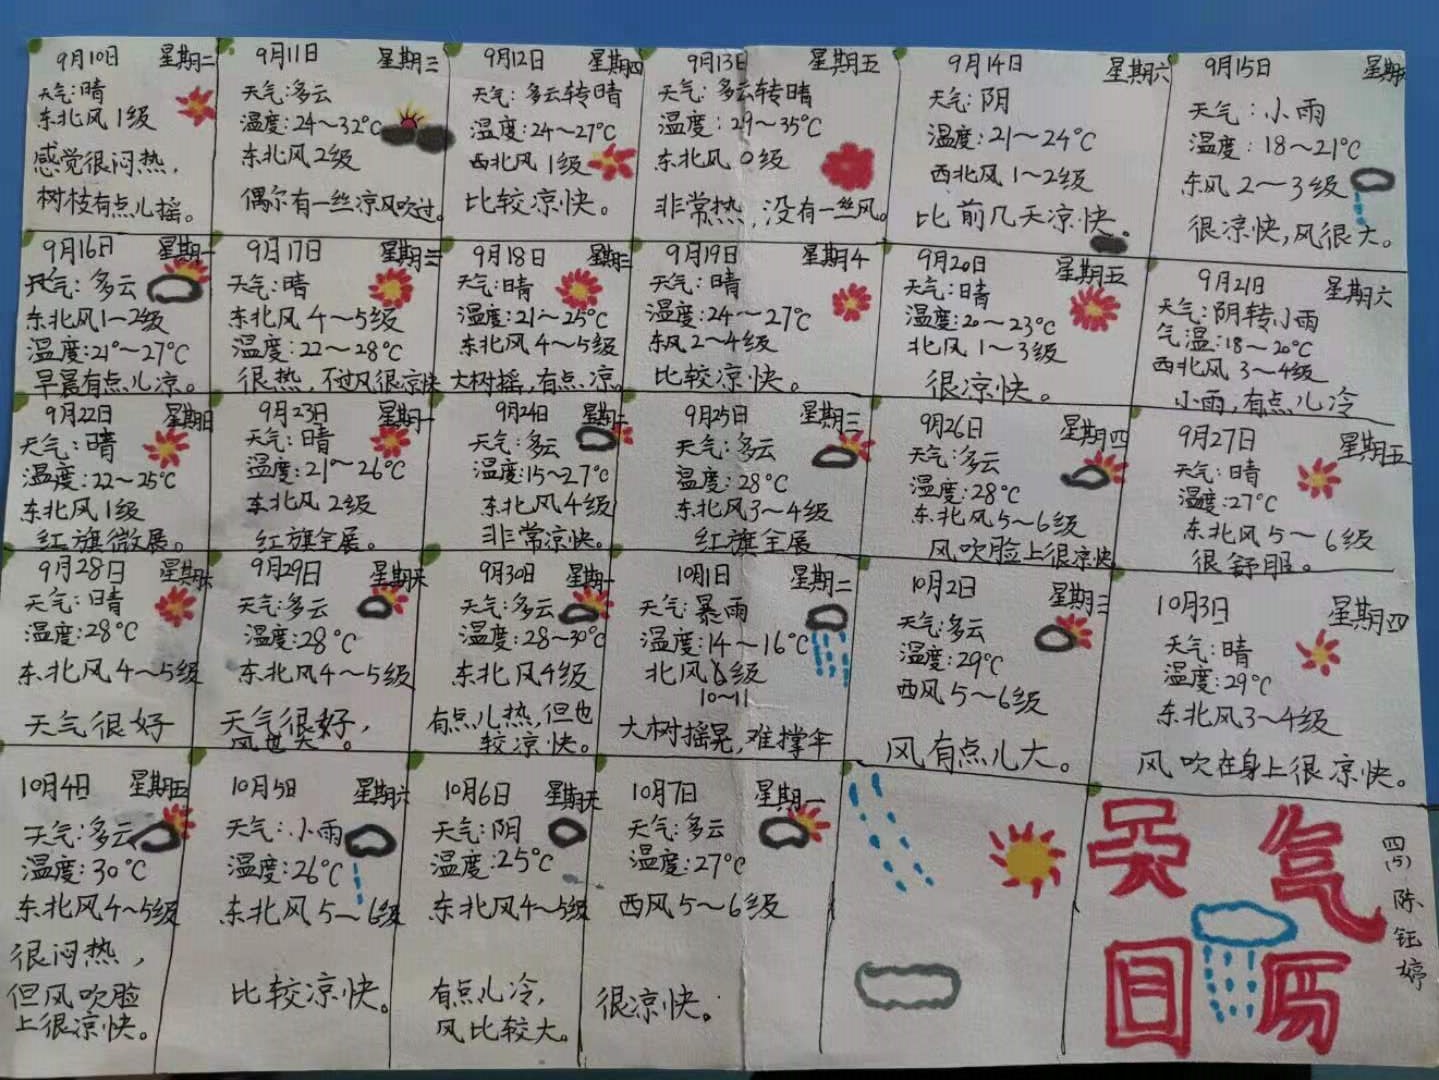 9月10日 星期二
天气:晴
东北风1级
感觉很闷热,
树枝有点儿摇。
9月11日 星期三
天气:多云
温度:24～32℃
东北风2级
偶尔有一丝凉风吹过。
9月12日 星期四
天气:多云转晴
温度:24～27℃
西北风1级
比较凉快。
9月13日 星期五
天气:多云转晴
温度:29～35℃
东北风0级
非常热,没有一丝风。
9月14日 星期六
天气:阴
温度:21～24℃
西北风1～2级
比前几天凉快。
9月15日 星期
天气:小雨
温度:18～21℃
东风2～3级
很凉快,风很大。
9月16日 星期一
天气:多云
东北风1～2级
温度:21°～27℃
早晨有点儿凉。
9月17日 星期二
天气:晴
东北风4～5级
温度:22～28℃
很热,不过风很凉快
9月18日 星期三
天气:晴
温度:21～25℃
东北风4～5级
大树摇,有点凉。
9月19日 星期4
天气:晴
温度:24～27℃
东风2～4级
比较凉快。
9月20日 星期五
天气:晴
温度:20～23℃
北风1～3级
很凉快。
9月21日 星期六
天气:阴转小雨
气温:18～20℃
西北风3～4级
小雨,有点儿冷
9月22日 星期日
天气:晴
温度:22～25℃
东北风1级
红旗微展。
9月23日 星期一
天气:晴
温度:21～26℃
东北风2级
红旗全展。
9月24日 星期二
天气:多云
温度:15～27℃
东北风4级
非常凉快。
9月25日 星期三
天气:多云
温度:28℃
东北风3～4级
红旗全展
9月26日 星期四
天气:多云
温度:28℃
东北风5～6级
风吹脸上很凉快
9月27日 星期五
天气:晴
温度:27℃
东北风5～6级
很舒服。
9月28日 星期六
天气:晴
温度:28℃
东北风4～5级
天气很好
9月29日 星期天
天气:多云
温度:28℃
东北风4～5级
天气很好,
风也大。
9月30日 星期一
天气:多云
温度:28～30℃
东北风4级
有点儿热,但也
较凉快。
10月1日 星期二
天气:暴雨
温度:14～16℃
北风级
10～11
大树摇晃,难撑伞
10月2日 星期三
天气:多云
温度:29℃
西风5～6级
风有点儿大。
10月3日 星期四
天气:晴
温度:29℃
东北风3～4级
风吹在身上很凉快。
10月4日 星期五
天气:多云
温度:30℃
东北风4～5级
很闷热,
但风吹脸
上很凉快。
10月5日 星期六
天气:小雨
温度:26℃
东北风5～6级
比较凉快。
10月6日 星期天
天气:阴
温度:25℃
东北风4～5级
有点儿冷,
风比较大。
10月7日 星期一
天气:多云
温度:27℃
西风5～6级
很凉快.
天气
日历
四(5)陈钰婷